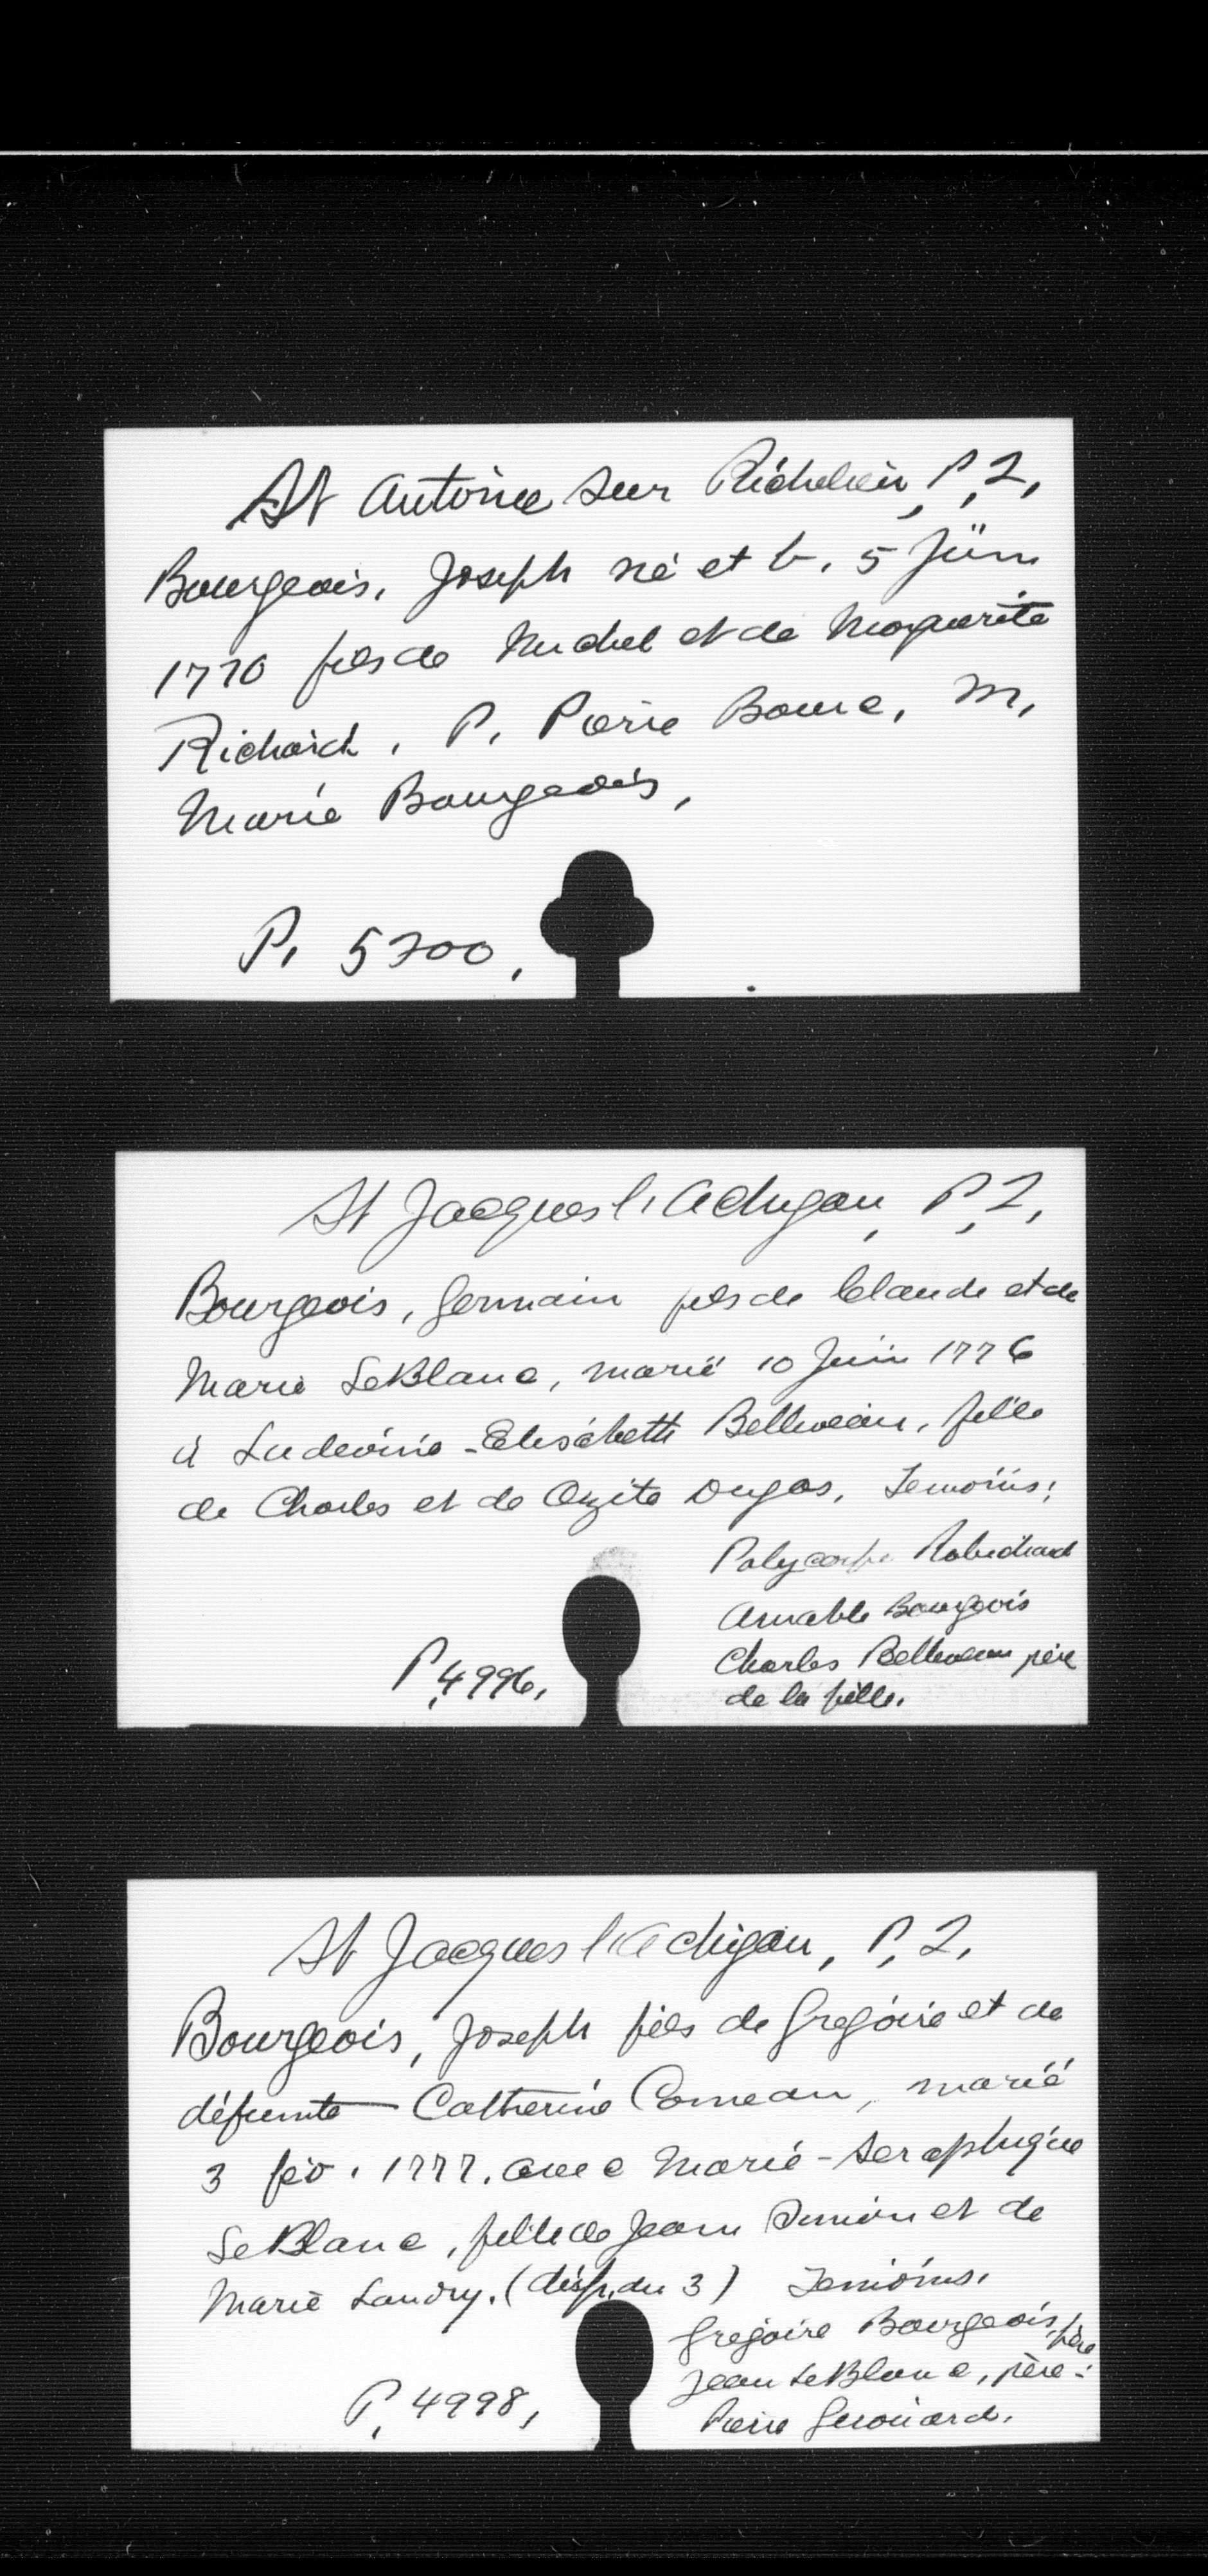 St Antoine sur Richelieu, P, 2,
Bourgeois, Joseph né et b. 5 Juin
1770 fils de Michel et de Marguerite
Richard. P. Pierre Bourc, M,
Marie Bourgeois,
P. 5700,
St Jacques l'Achigan, P, 2,
Bourgeois, Germain fils de Claude et de
Marie LeBlanc, marié 10 Juin 1776
à Ludevine-Elisabeth Belliveau, fille
de Charles et de Ozite Dugas. Temoins:
Polycarpe Robichaud
Amable Bourgeois
Charles Belliveau père
de la fille.
P, 4996,
St Jacques l'Achigan, P, 2,
Bourgeois, Joseph fils de Grégoire et de
défunte Catherine Comeau, marié
3 fév. 1777. avec Marie-Seraphique
LeBlanc, fille de Jean Simon et de
Marie Landry. (disp. du 3) Temoins.
Grégoire Bourgeois, père
Jean LeBlanc, père-
Pierre Girouard.
P, 4998,